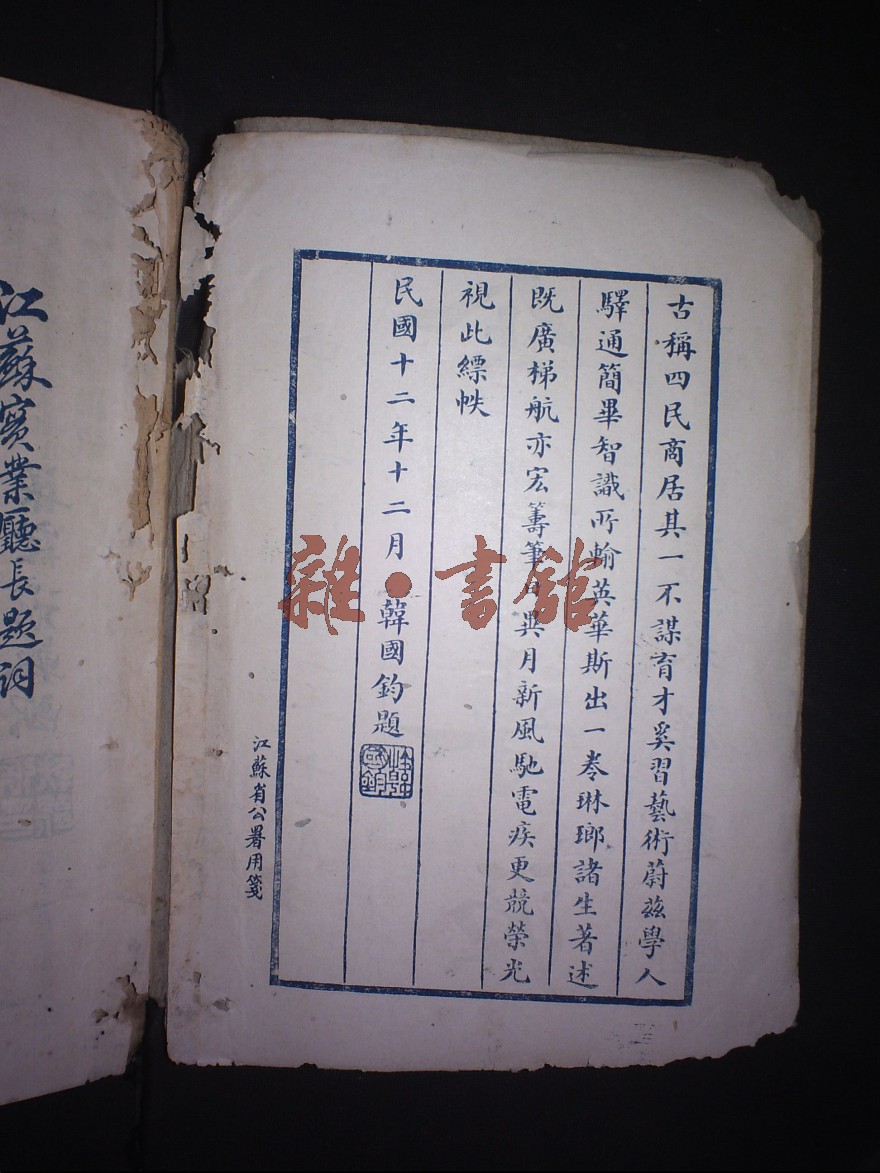 古稱四民商居其一不謀育才奚習藝術蔚茲學人
驛通簡畢智識所輸英華斯出一卷琳瑯諸生著述
既廣梯航亦宏籌筆日異月新風馳電疾更競榮光
視此縹帙
民國十二年十二月 韓國鈞題
江蘇省公署用箋
江蘇實業廳長題詞
雜·書館